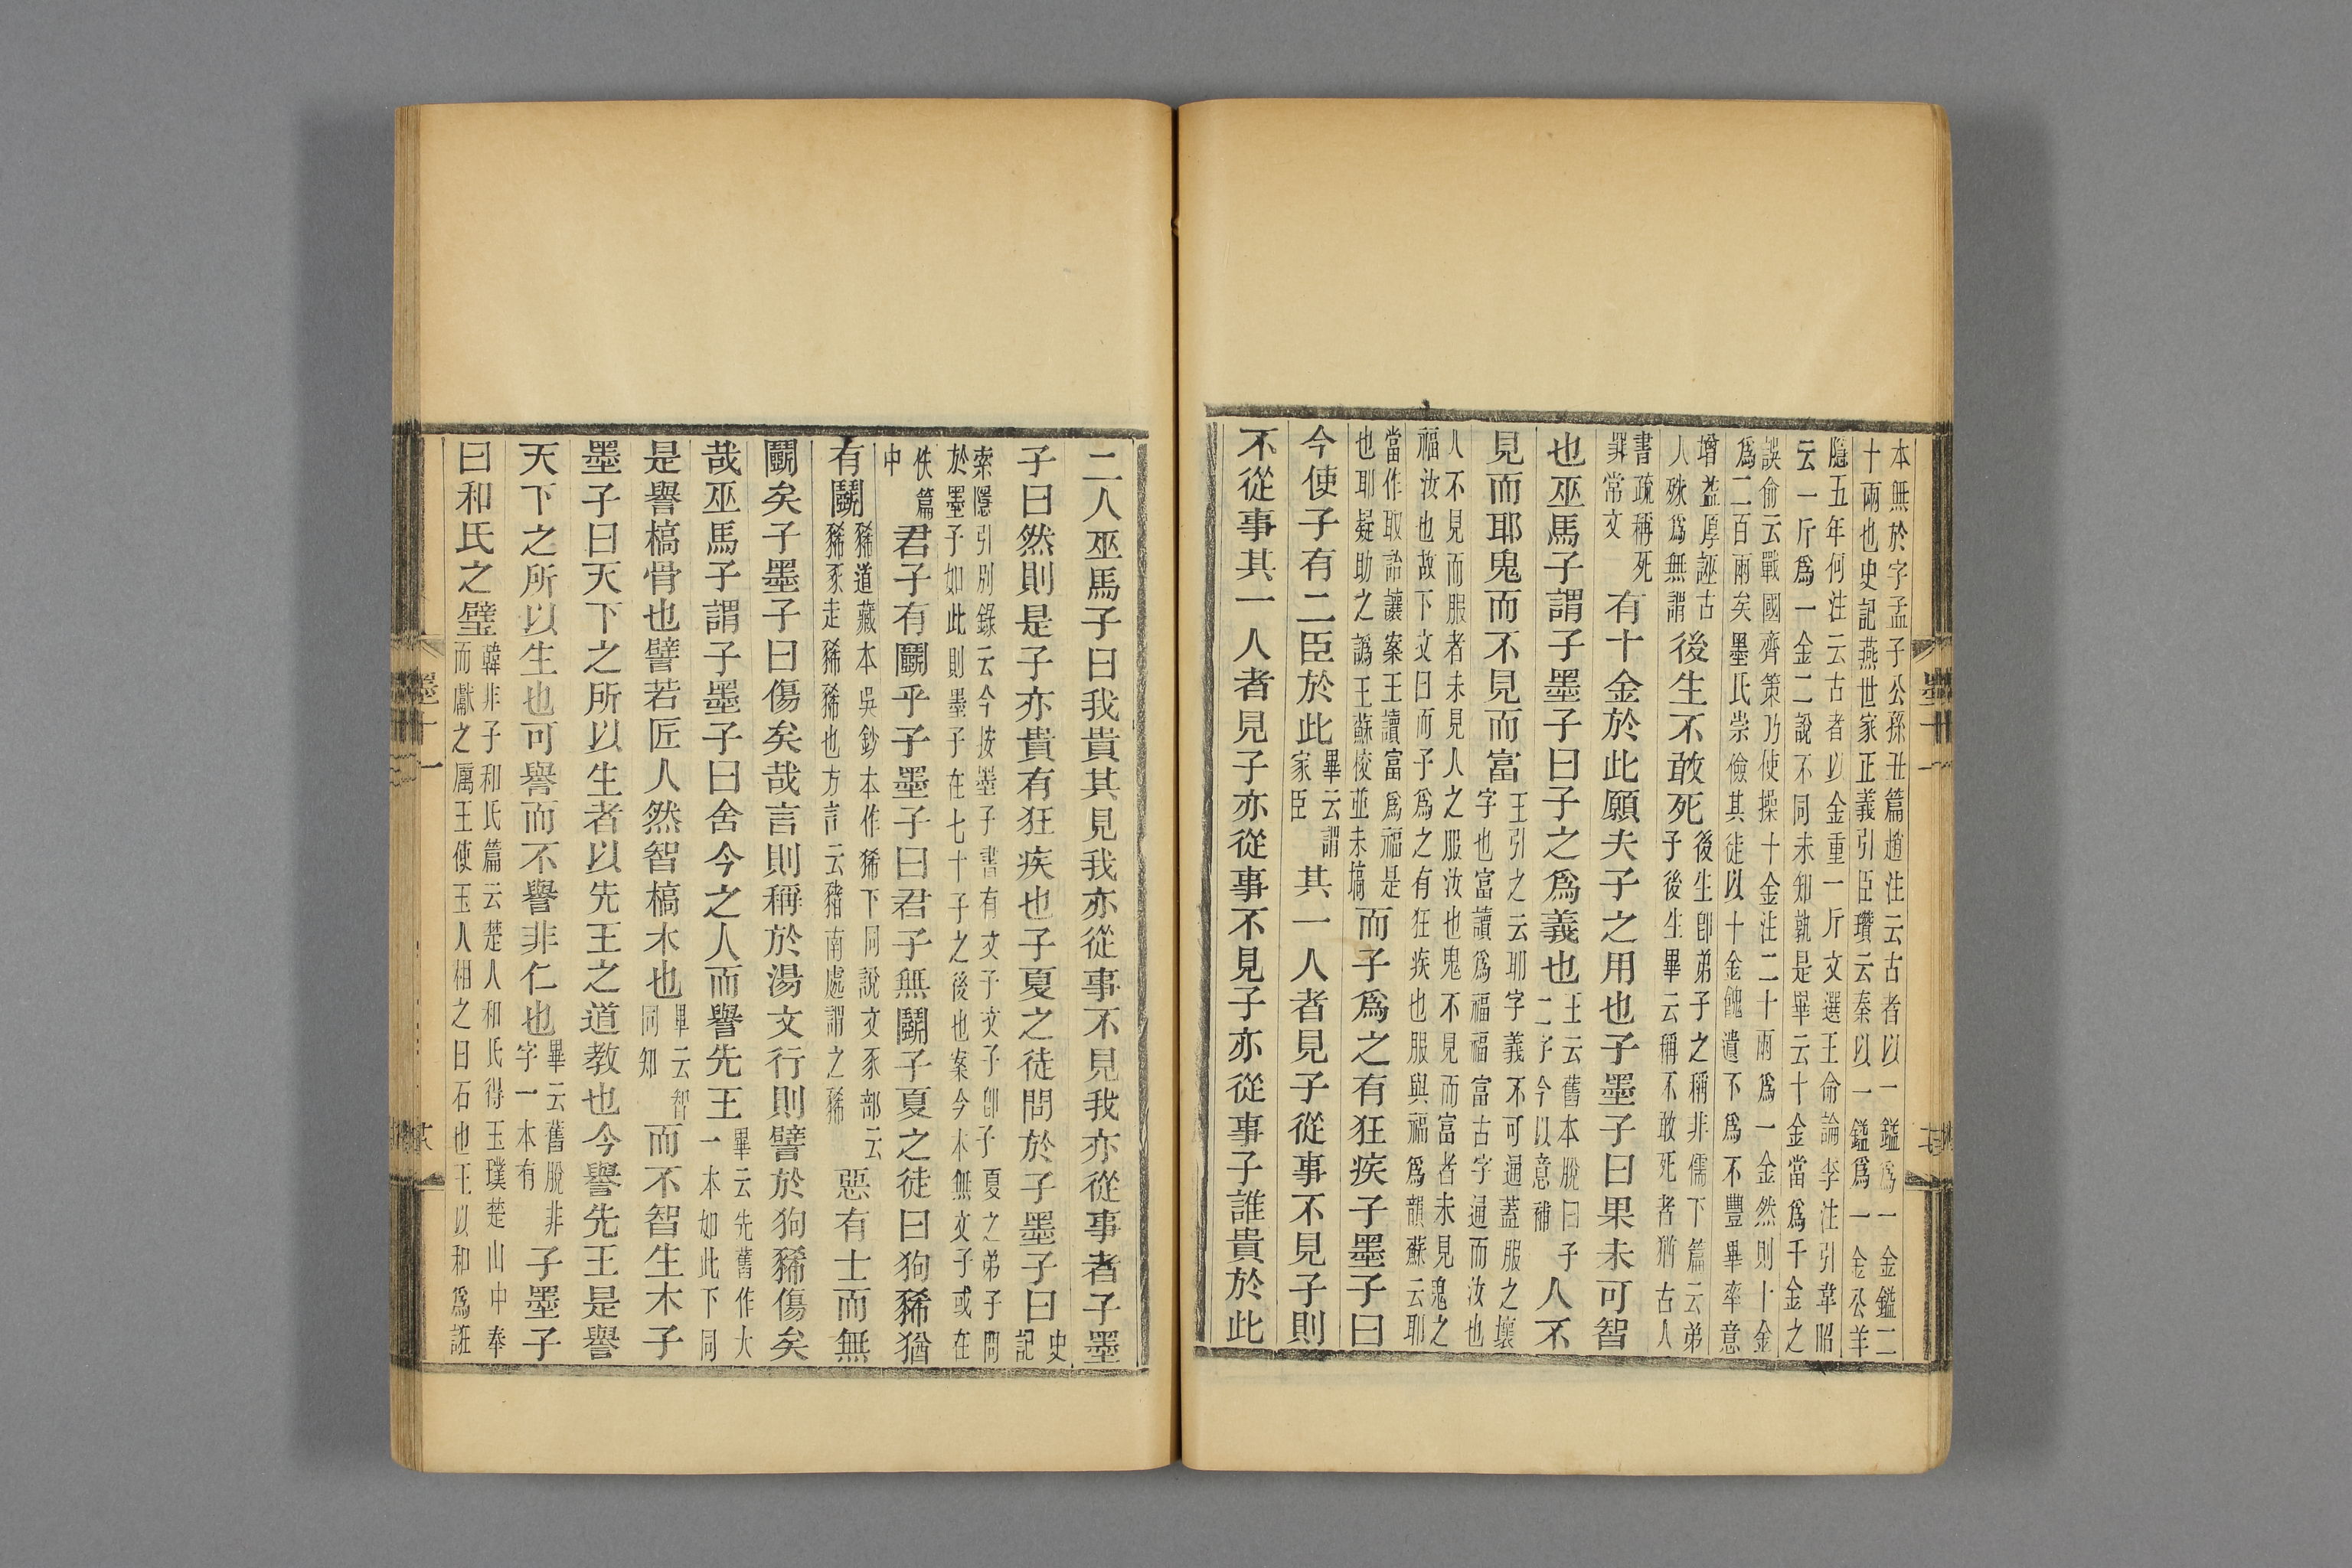 本無於字孟子公孫丑篇趙注云古者以一鎰爲一金鎰二
十兩也史記燕世家正義引臣瓚云秦以一鎰爲一金公羊
隱五年何注云古者以金重一斤文選王命論李注引韋昭
云一斤爲一金二說不同未知孰是畢云十金當爲千金之
誤俞云戰國齊策乃使操十金注二十兩爲一金然則十金
爲二百兩矣墨氏崇儉其徒以十金餽遺不爲不豐畢率意
增益厚誣古人殊爲無謂後生不敢死後生卽弟子之稱非儒下篇云弟子後生畢云稱不敢死者猶古人
書疏稱死罪常文有十金於此願夫子之用也子墨子曰果未可智
也巫馬子謂子墨子曰子之爲義也王云舊本脫曰子二字今以意補人不
見而耶鬼而不見而富王引之云耶字義不可通蓋服之壞字也富讀爲福福富古字通而汝也
人不見而服者未見人之服汝也鬼不見而富者未見鬼之
福汝也故下文曰而子爲之有狂疾也服與福爲韻蘇云耶
當作取詒讓案王讀富爲福是也耶疑助之譌王蘇校並未塙而子爲之有狂疾子墨子曰
今使子有二臣於此畢云謂家臣其一人者見子從事不見子則
不從事其一人者見子亦從事不見子亦從事子誰貴於此
墨十一
二人巫馬子曰我貴其見我亦從事不見我亦從事者子墨
子曰然則是子亦貴有狂疾也子夏之徒問於子墨子曰史記
索隱引別錄云今按墨子書有文子文子卽子夏之弟子問
於墨子如此則墨子在七十子之後也案今本無文子或在
佚篇中君子有鬭乎子墨子曰君子無鬭子夏之徒曰狗豨猶
有鬭豨道藏本吳鈔本作狶下同說文豕部云豨豕走豨豨也方言云豬南處謂之豨惡有士而無
鬭矣子墨子曰傷矣哉言則稱於湯文行則譬於狗豨傷矣
哉巫馬子謂子墨子曰舍今之人而譽先王畢云先舊作大一本如此下同
是譽槁骨也譬若匠人然智槁木也畢云智同知而不智生木子
墨子曰天下之所以生者以先王之道教也今譽先王是譽
天下之所以生也可譽而不譽非仁也畢云舊脫非字一本有子墨子
曰和氏之璧韓非子和氏篇云楚人和氏得玉璞楚山中奉而獻之厲王使玉人相之曰石也王以和爲誑
墨十一